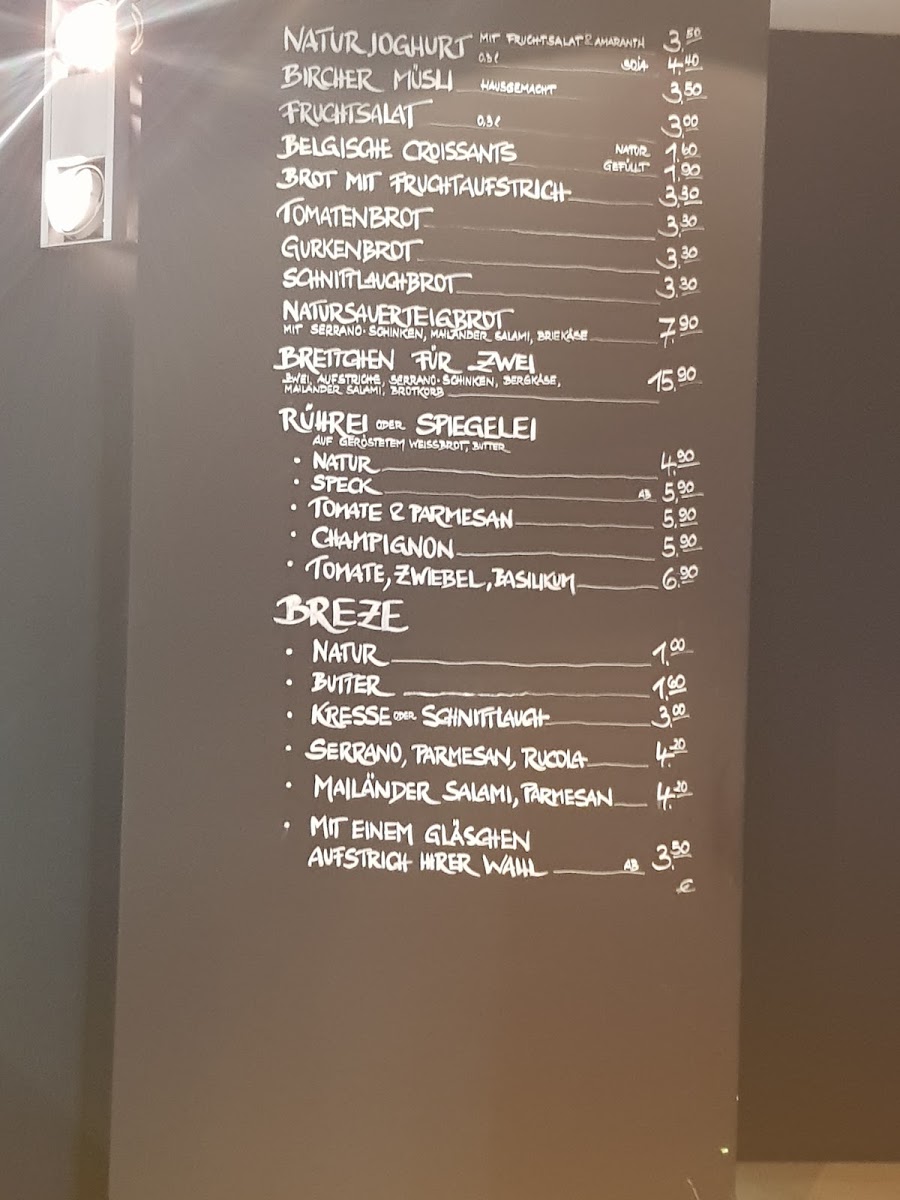 NATURJOGHURT MIT FRUCHTSALAT & AMARANTH 3,50
0,3l SOJA 4,40
BIRCHER MÜSLI HAUSGEMACHT 3,50
FRUCHTSALAT 0,3l 3,00
BELGISCHE CROISSANTS NATUR 1,60
GEFÜLLT 1,90
BROT MIT FRUCHTAUFSTRICH 3,30
TOMATENBROT 3,30
GURKENBROT 3,30
SCHNITTLAUCHBROT 3,30
NATURSAUERTEIGBROT
MIT SERRANO-SCHINKEN, MAILÄNDER SALAMI, BRIEKÄSE 7,90
BRETTCHEN FÜR ZWEI
ZWEI AUFSTRICHE, SERRANO-SCHINKEN, BERGKÄSE, 15,90
MAILÄNDER SALAMI, BROTKORB
RÜHREI ODER SPIEGELEI
AUF GERÖSTETEM WEISSBROT, BUTTER
• NATUR 4,90
• SPECK AB 5,90
• TOMATE & PARMESAN 5,90
• CHAMPIGNON 5,90
• TOMATE, ZWIEBEL, BASILIKUM 6,90
BREZE
• NATUR 1,00
• BUTTER 1,60
• KRESSE ODER SCHNITTLAUCH 3,00
• SERRANO, PARMESAN, RUCOLA 4,20
• MAILÄNDER SALAMI, PARMESAN 4,20
• MIT EINEM GLÄSCHEN
AUFSTRICH IHRER WAHL AB 3,50
€